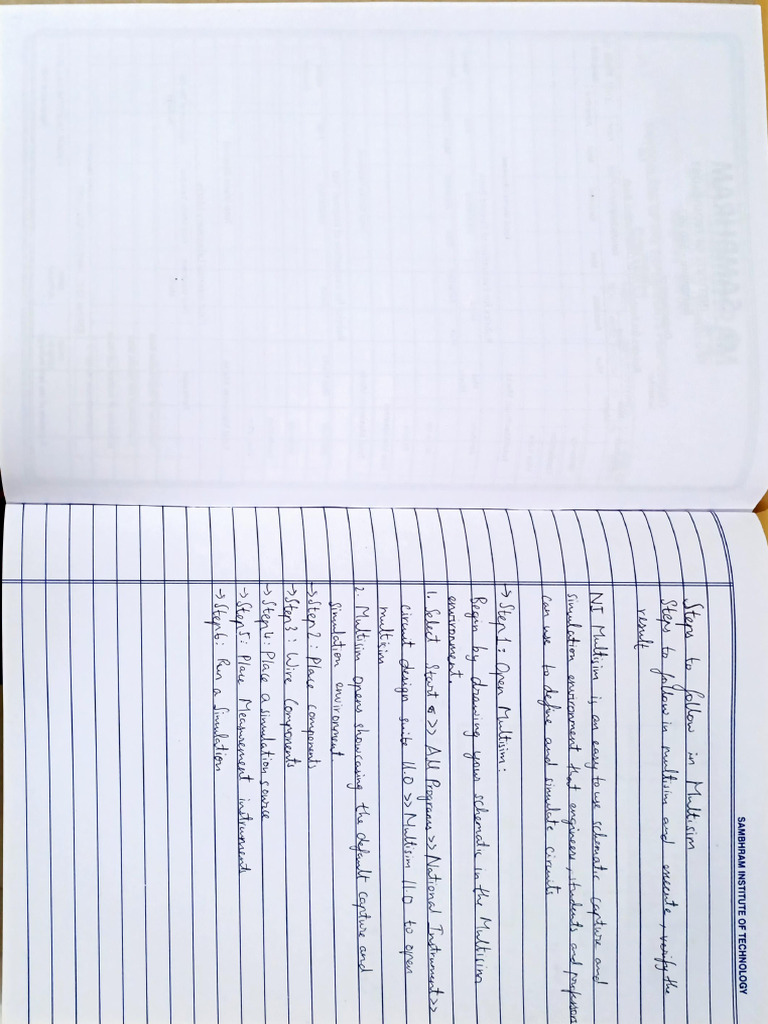 SAMBHRAM INSTITUTE OF TECHNOLOGY
Steps to follow in Multisim
Steps to follow in multisim and execute, verify the
result
NI Multisim is an easy to use schematic capture and
simulation environment that engineers, students and professors
can use to define and simulate circuits
→ Step 1: Open Multisim:
Begin by drawing your schematic in the Multisim
environment.
1. Select Start >> All Programs >> National Instrument >>
circuit design suite 11.0 >> Multisim 11.0 to open
multisim
2. Multisim opens showcasing the default capture and
simulation environment.
→ Step 2: Place components
→ Step 3: Wire Components
→ Step 4: Place a simulation source
→ Step 5: Place Measurement instruments
→ Step 6: Run a Simulation